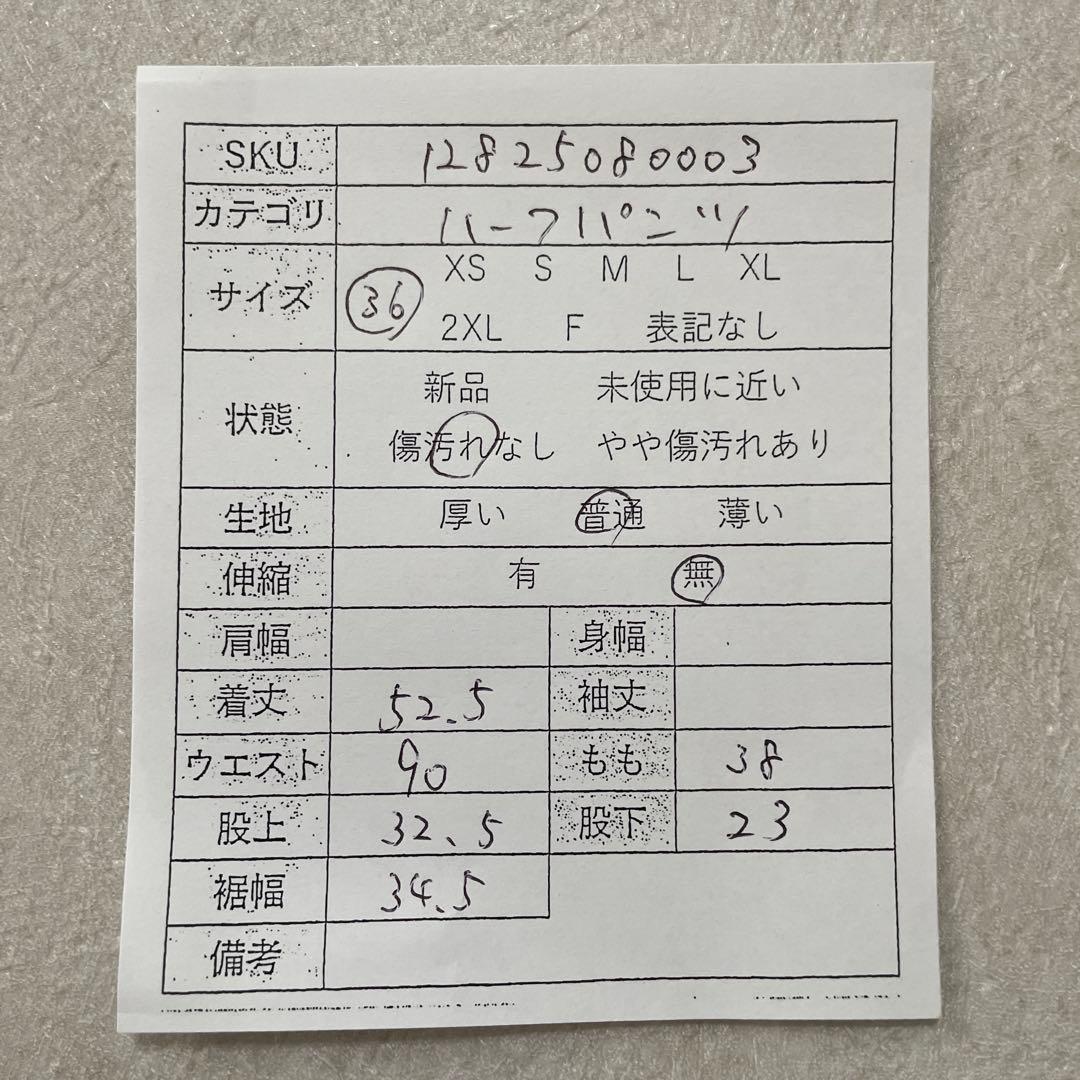 SKU 12825080003
カテゴリ ハーフパンツ
XS S M L XL
サイズ 36
2XL F 表記なし
新品 未使用に近い
状態
傷汚れなし やや傷汚れあり
生地 厚い 普通 薄い
伸縮 有 無
肩幅 身幅
着丈 52.5 袖丈
ウエスト 90 もも 38
股上 32.5 股下 23
裾幅 34.5
備考